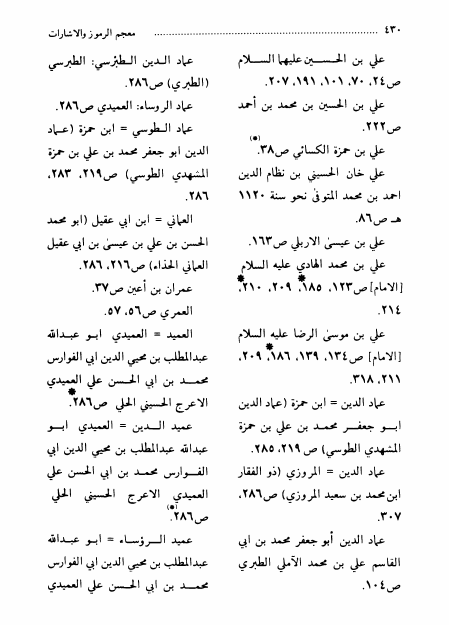 ٤٣٠ معجم الرموز والاشارات
علي بن الحسين عليهما السلام
ص٢٤، ٧٠، ١٠١، ١٩١، ٢٠٧.
علي بن الحسين بن محمد بن أحمد
ص٢٢٢.
علي بن حمزة الكسائي ص٣٨.(*)
علي خان الحسيني بن نظام الدين
احمد بن محمد المتوفى نحو سنة ١١٢٠
هـ ص٨٦.
علي بن عيسىٰ الاربلي ص١٦٣.
علي بن محمد الهادي عليه السلام
[الامام] ص١٢٣، ١٨٥*، ٢٠٩، ٢١٠*،
٢١٤.
علي بن موسىٰ الرضا عليه السلام
[الامام] ص١٣٤، ١٣٩، ١٨٦*، ٢٠٩،
٢١١، ٣١٨.
عماد الدين = ابن حمزة (عماد الدين
ابو جعفر محمد بن علي بن حمزة
المشهدي الطوسي) ص٢١٩، ٢٨٥.
عماد الدين = المروزي (ذو الفقار
ابن محمد بن سعيد المروزي) ص٢٨٦،
٣٠٧.
عماد الدين أبو جعفر محمد بن ابي
القاسم علي بن محمد الآملي الطبري
ص١٠٤.
عماد الدين الطبرسي: الطبرسي
(الطبري) ص٢٨٦.
عماد الروساء: العميدي ص٢٨٦.
عماد الطوسي = ابن حمزة (عماد
الدين ابو جعفر محمد بن علي بن حمزة
المشهدي الطوسي) ص٢١٩، ٢٨٣،
٢٨٦.
العماني = ابن ابي عقيل (ابو محمد
الحسن بن علي بن عيسىٰ بن ابي عقيل
العماني الحذاء) ص٢١٦، ٢٨٦.
عمران بن أعين ص٣٧.
العمري ص٥٦، ٥٧.
العميد = العميدي ابو عبدالله
عبدالمطلب بن محيي الدين ابي الفوارس
محمد بن ابي الحسن علي العميدي
الاعرج الحسيني الحلي ص٢٨٦*.
عميد الدين = العميدي ابو
عبدالله عبدالمطلب بن محيي الدين ابي
الفوارس محمد بن ابي الحسن علي
العميدي الاعرج الحسيني الحلي
ص٢٨٦.(*)
عميد الرؤساء = ابو عبدالله
عبدالمطلب بن محيي الدين ابي الفوارس
محمد بن ابي الحسن علي العميدي